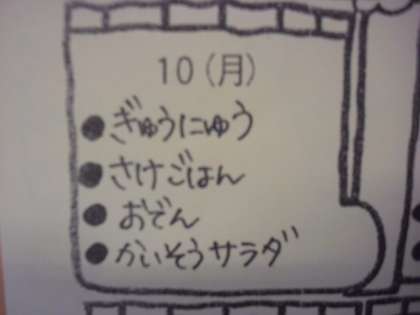 10(月)
●ぎゅうにゅう
●さけごはん
●おぞん
●かいそうサラダ